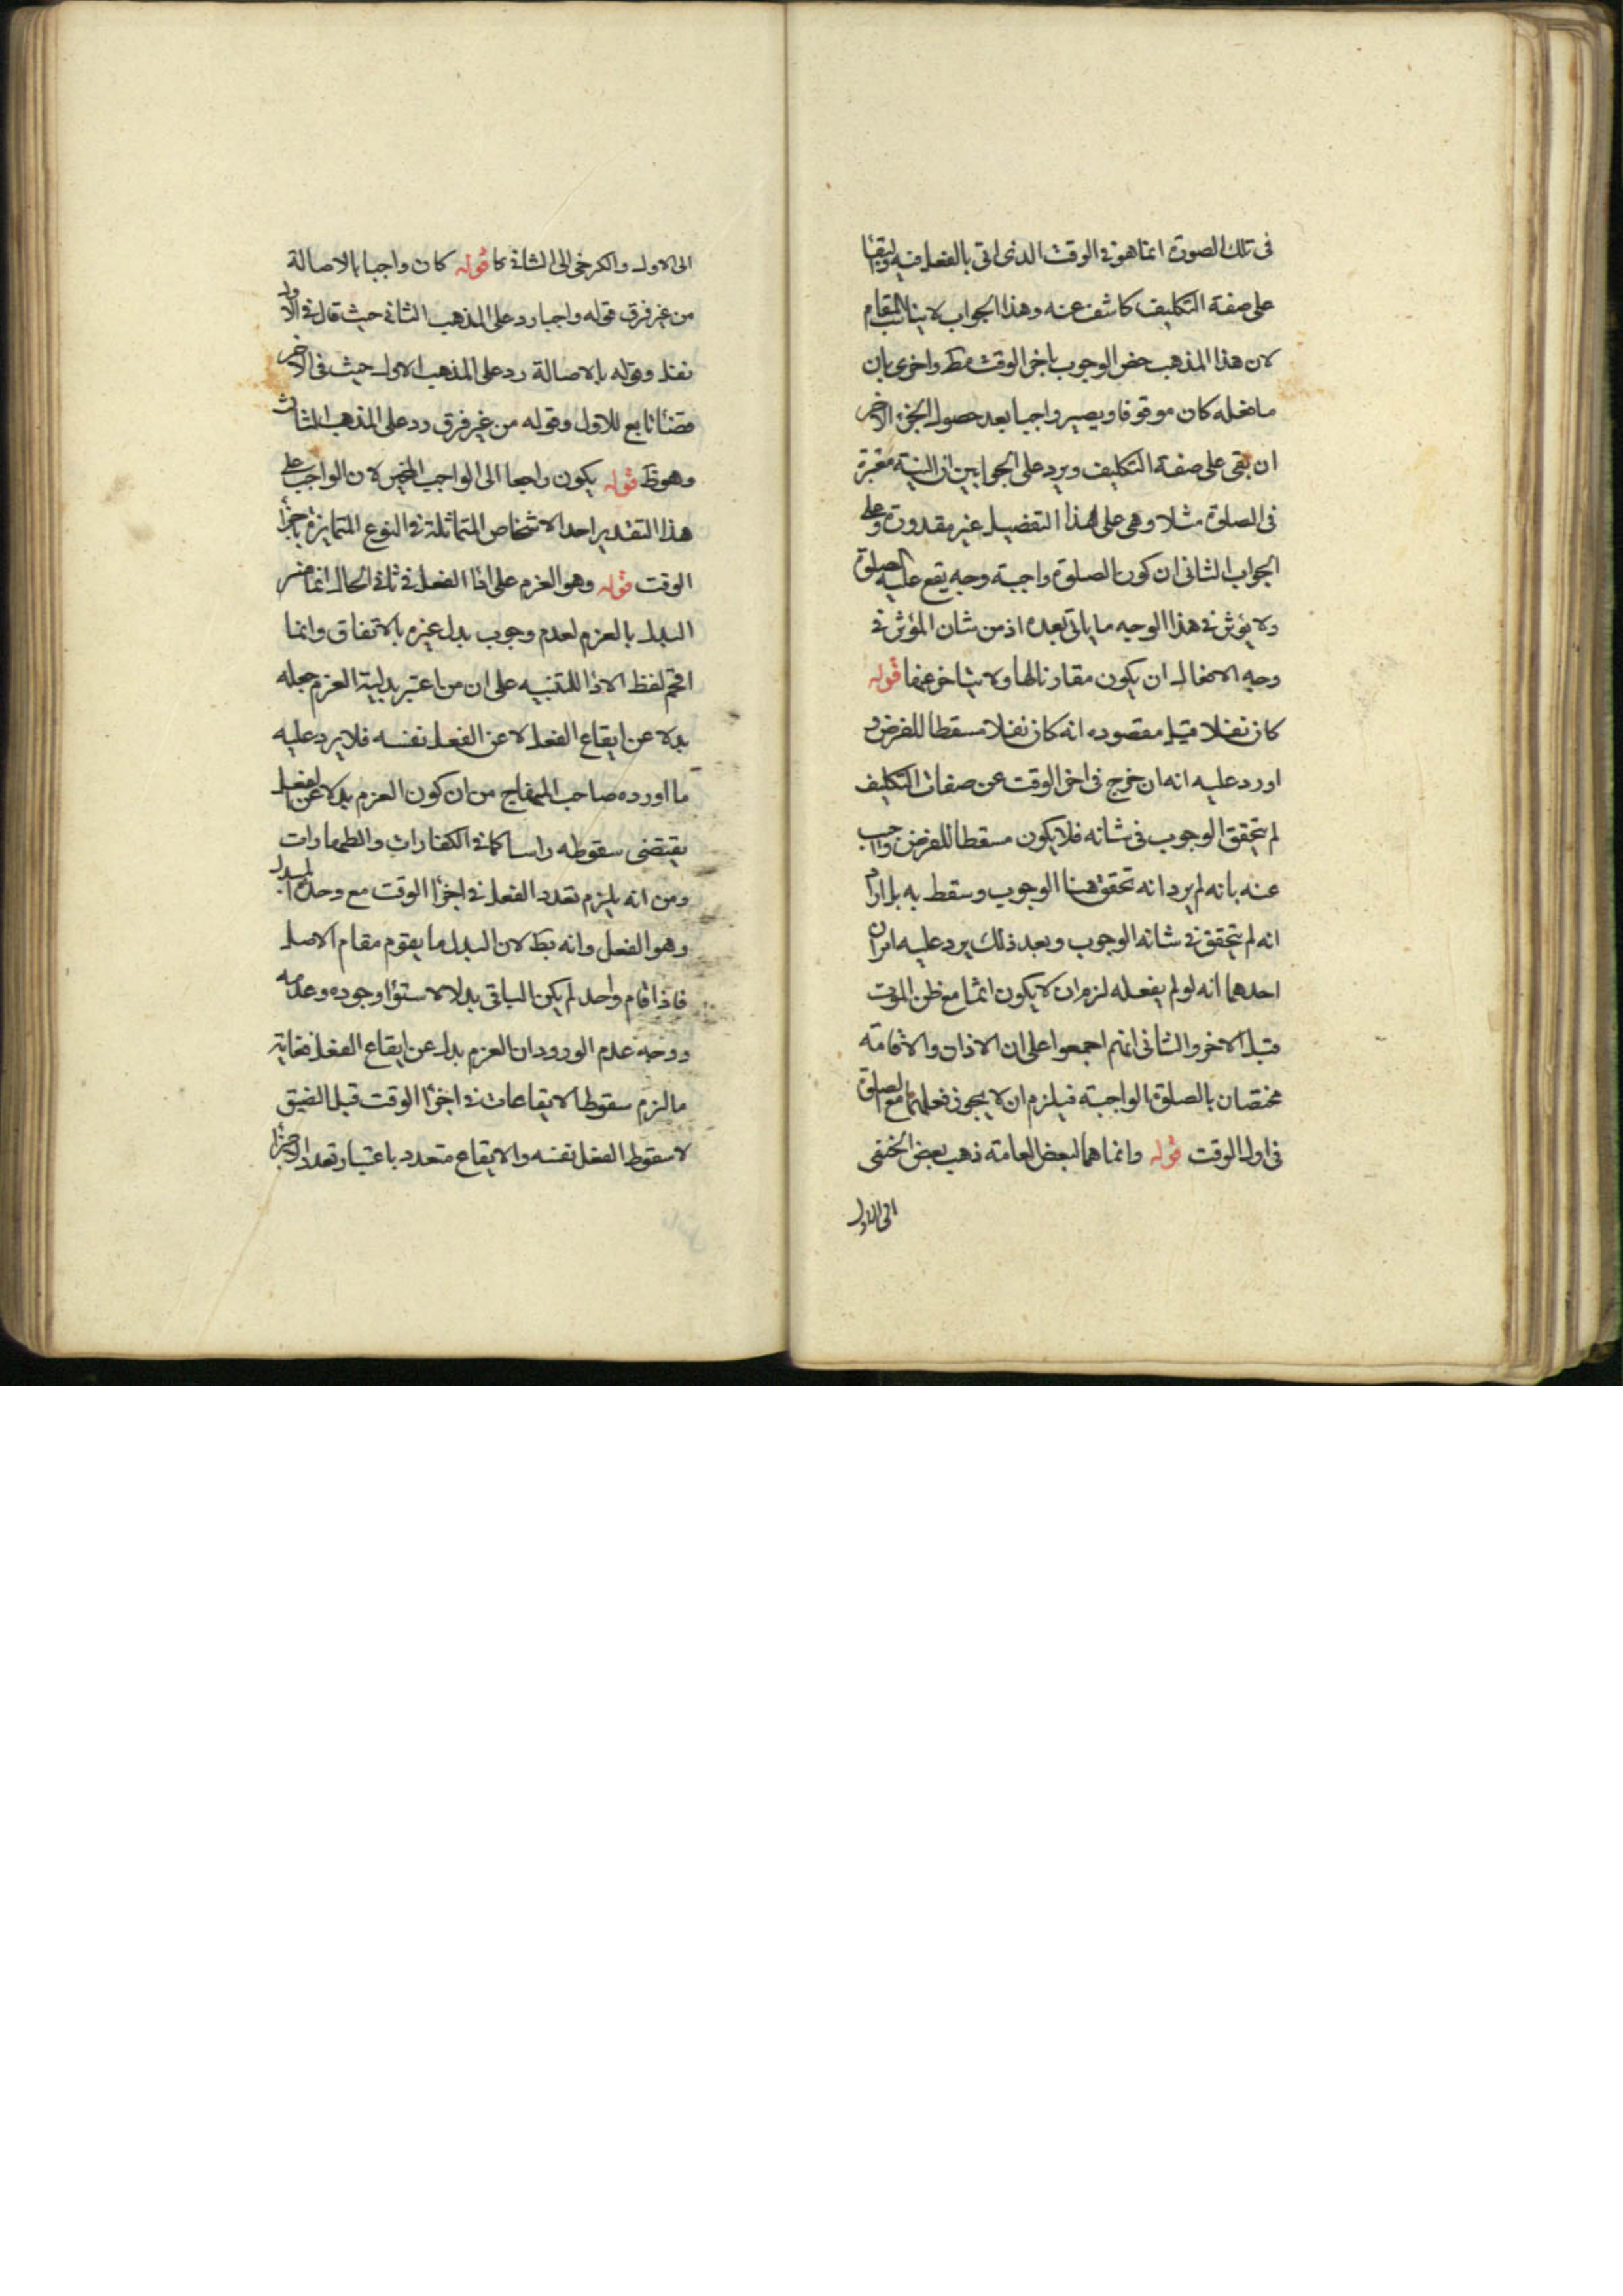 فى تلك الصورة انما هو فى الوقت الذى اتى بالفعل فيه والبقاء
على صفة التكليف كاشف عنه وهذا الجواب لا يناسب المقام
لان هذا المذهب خص الوجوب باخر الوقت فقط واخرى بان
ما فعله كان موقوفا ويصير واجبا بعد حصول الجزء الاخير
ان بقى على صفة التكليف ويرد على الجوابين ان النية معتبرة
فى الصلوة مثلا وهى على هذا التفصيل غير مقدورة وعلى
الجواب الثانى ان كون الصلوة واجبة وجه يقع عليه الصلوة
ولا يؤثر فى هذا الوجه ما ياتى بعده اذ من شان المؤثر فى
وجه الافعال ان يكون مقارنا لها ولا يتاخر عنها قوله
كان نفلا قيل مقصوده انه كان نفلا مسقطا للفرض و
اورد عليه انه ان خرج فى اخر الوقت عن صفات التكليف
لم يتحقق الوجوب فى شانه فلا يكون مسقطا للفرض واجيب
عنه بانه لم يرد انه تحقق هنا الوجوب وسقط به بل اراد
انه لم يتحقق فى شانه الوجوب وبعد ذلك يرد عليه امران
احدهما انه لو لم يفعله لزم ان لا يكون اثما مع ظن الموت
قبل الاخر والثانى انهم اجمعوا على ان الاذان والاقامة
مختصان بالصلوة الواجبة فيلزم ان لا يجوز فعلهما مع الصلوة
فى اول الوقت قوله وانما هما لبعض العامة ذهب بعض الحنفى
الى الاول
الى الاول والكرخى الى الثانى كا قوله كان واجبا بالاصالة
من غير فرق قوله واجبا رد على المذهب الثانى حيث قال فى الاول
نفل وقوله بالاصالة رد على المذهب الاول حيث فى الاخير
قضاء تابع للاول وقوله من غير فرق رد على المذهب الثالث
وهو ظ قوله يكون راجعا الى الواجب المخير لان الواجب على
هذا التقدير احد الاشخاص المتماثلة فى النوع المتمايزة باجزاء
الوقت قوله وهو العزم على اداء الفعل فى ثانى الحال انما فسر
البدل بالعزم لعدم وجوب بدل غيره بالاتفاق وانما
اقحم لفظ الاداء للتنبيه على ان من اعتبر بدلية العزم جعله
بدلا عن ايقاع الفعل لا عن الفعل نفسه فلا يرد عليه
ما اورده صاحب المنهاج من ان كون العزم بدلا عن الفعل
يقتضى سقوطه راسا كما فى الكفارات والطهارات
ومن انه يلزم تعدد الفعل فى اجزاء الوقت مع وحدة المبدل
وهو الفعل وانه بط لان البدل ما يقوم مقام الاصل
فاذا قام واحد لم يكن الباقى بدلا لاستواء وجوده وعدمه
ووجه عدم الورود ان العزم بدل عن ايقاع الفعل فغاية
ما لزم سقوط الايقاعات فى اجزاء الوقت قبل الضيق
لا سقوط الفعل نفسه والايقاع متعدد باعتبار تعدد الاجزاء